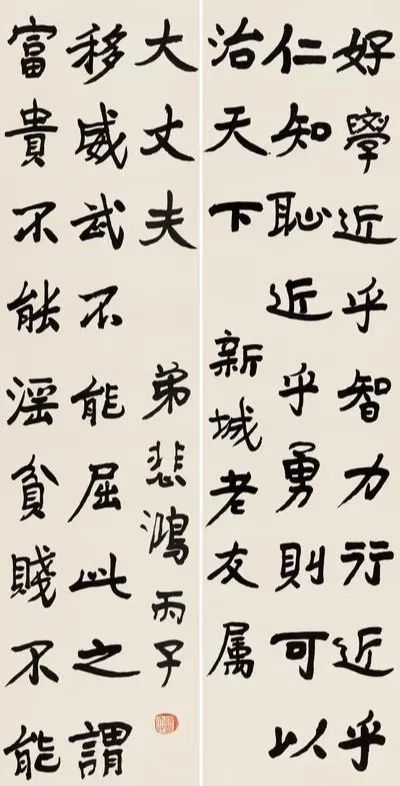 好學近乎智力行近乎
仁知恥近乎勇則可以
治天下
新城老友属
富貴不能淫貧賤不能
移威武不能屈此之謂
大丈夫
弟悲鴻丙子